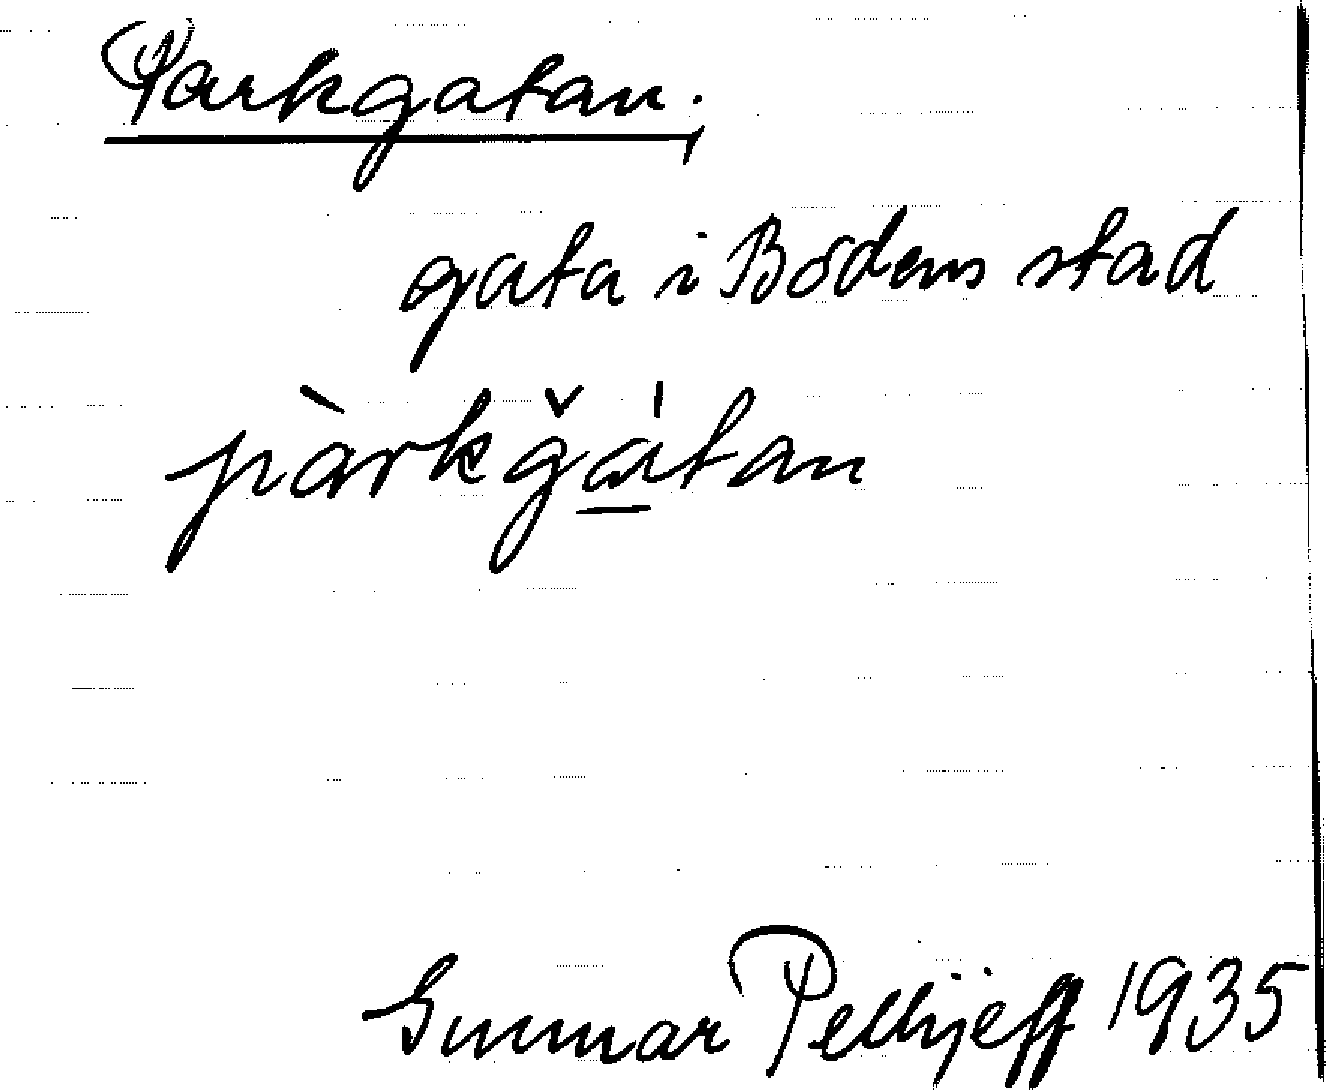 Parkgatan,
gata i Bodens stad
pàrkğa̲̍tan
Gunnar Pellijeff 1935